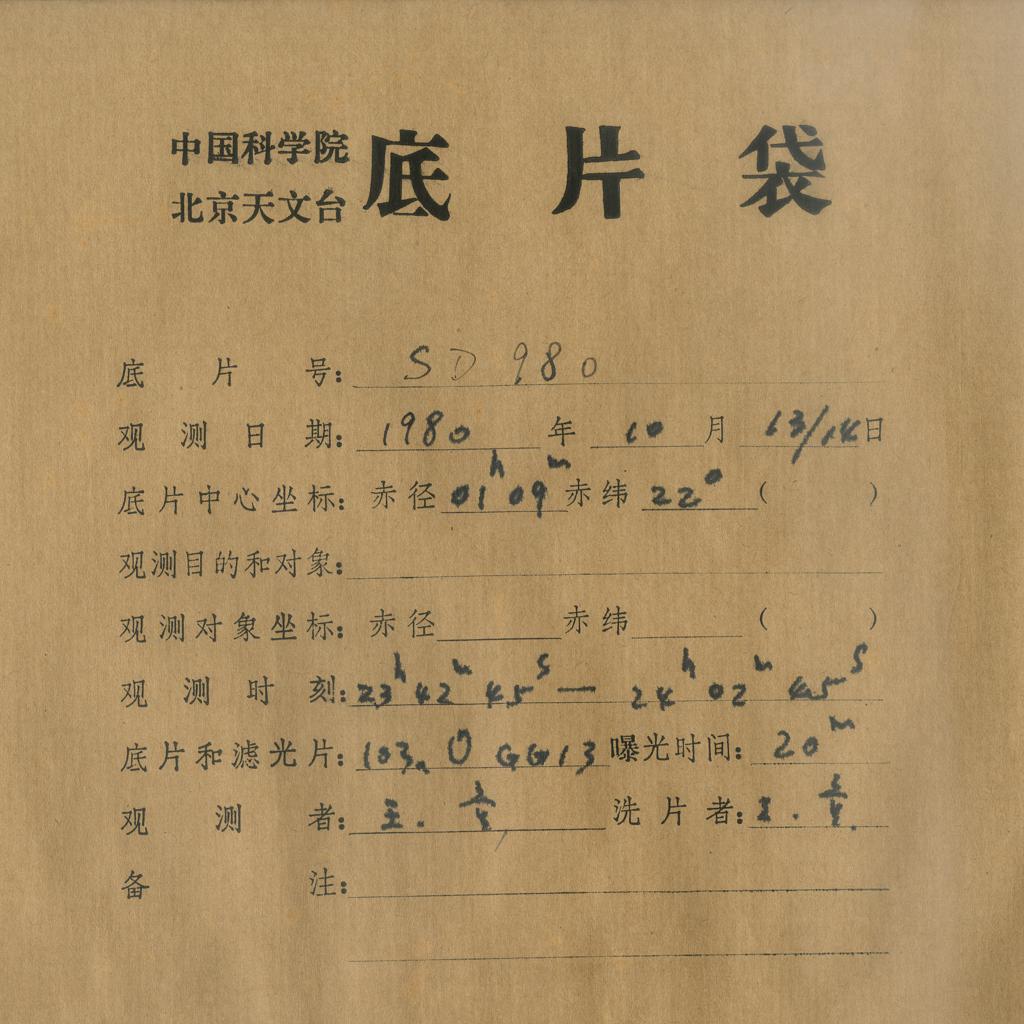 中国科学院
北京天文台
底片袋
底片号: SD 980
观测日期: 1980 年 10 月 13/14 日
底片中心坐标: 赤径 01h 09m 赤纬 22° ( )
观测目的和对象:
观测对象坐标: 赤径 赤纬 ( )
观测时刻: 23h 42m 45s — 24h 02m 45s
底片和滤光片: 103a O GG13 曝光时间: 20m
观测者: 王.
洗片者: 王.
备注: